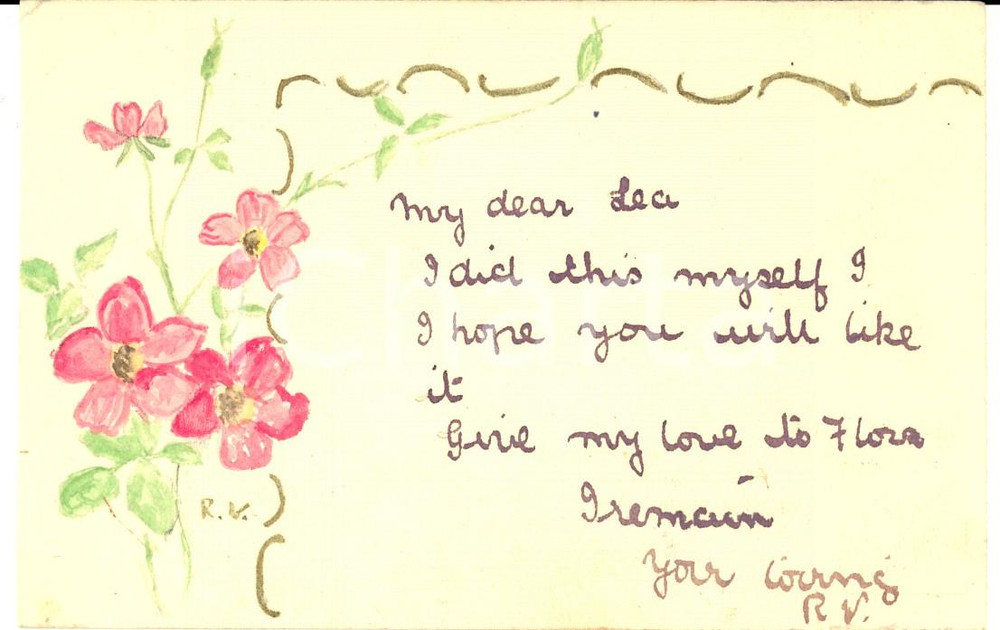 My dear Lea
I did this myself I
I hope you will like
it
Give my love to Flora
I remain
Your loving
R. V.
R V.